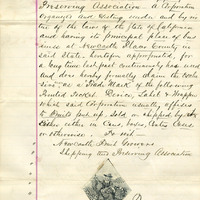 Preserving Association - A Corporation
Organized and Existing under and by vir
tue of the laws of the State of California
and having its principal place of bus
iness at Newcastle Placer County in
said State heretofore appropriated, for
a long time last past continuously has used
and does hereby formally claim the exclu
sive as a Trade Mark of the following
Printed Label
which said Corporation usually affixes
to Fruits put up, Sold or shipped by
either in Cans, boxes, Crates Cases
or otherwise. To wit
Newcastle Fruit Growers
Shipping and Preserving Association